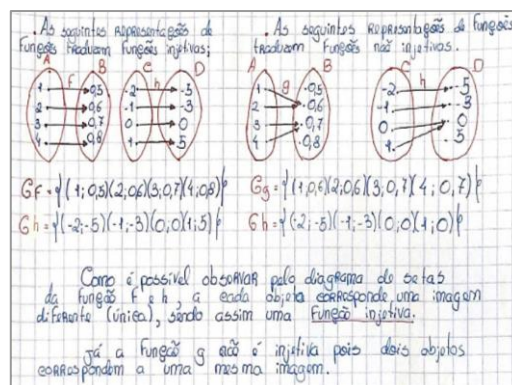 . As seguintes representações de
funções traduzam funções injetivas;
A B C D
f h
1 0,5 -2 -5
2 0,6 -1 -3
3 0,7 0 0
4 0,8 1 5
Gf = {(1; 0,5)(2;0,6)(3;0,7)(4;0,8)}
Gh = {(-2;-5)(-1;-3)(0;0)(1;5)}
. As seguintes representações de funções
traduzam funções não injetivas.
A B C D
g h
1 0,5 -2 -5
2 0,6 -1 -3
3 0,7 0 0
4 0,8 1 5
Gg = {(1;0,6)(2;0,6)(3;0,7)(4;0,7)}
Gh = {(-2;-5)(-1;-3)(0;0)(1;0)}
Como é possível observar pelo diagrama de setas
da função f e h, a cada objeto corresponde uma imagem
diferente (única), sendo assim uma função injetiva.
Já a função g não é injetiva pois dois objetos
correspondem a uma mesma imagem.